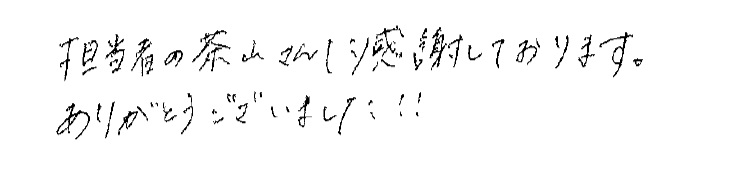 担当者の茶山さんに感謝しております。
ありがとうございました!!